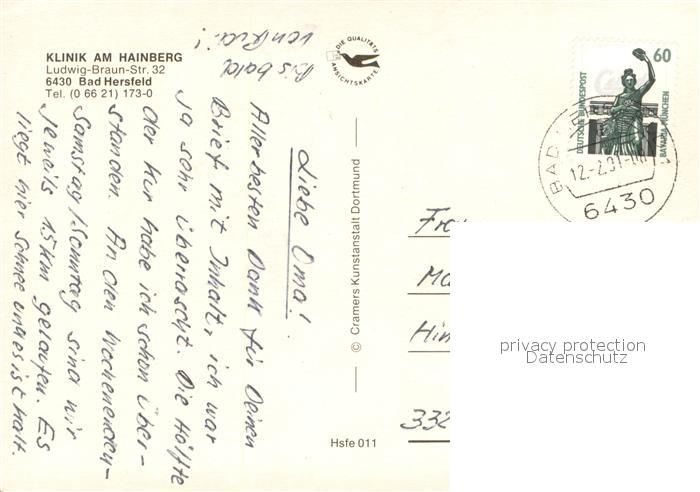 KLINIK AM HAINBERG
Ludwig-Braun-Str. 32
6430 Bad Hersfeld
Tel. (0 66 21) 173-0
Liebe Oma!
Allerbesten Dank für Deinen
Brief mit Inhalt, ich war
ja sehr überrascht. Die Hälfte
der Kur habe ich schon über-
standen. An den Wochenenden -
Samstag/Sonntag sind wir
jeweils 15 km gelaufen. Es
liegt hier Schnee und es ist kalt.
Bis bald
von
DIE QUALITÄTS
ANSICHTSKARTE
© Cramers Kunstanstalt Dortmund
Hsfe 011
60
DEUTSCHE BUNDESPOST
BAVARIA MÜNCHEN
BAD
12.-2.91
6430
Frau
Ma
Him
332
privacy protection
Datenschutz